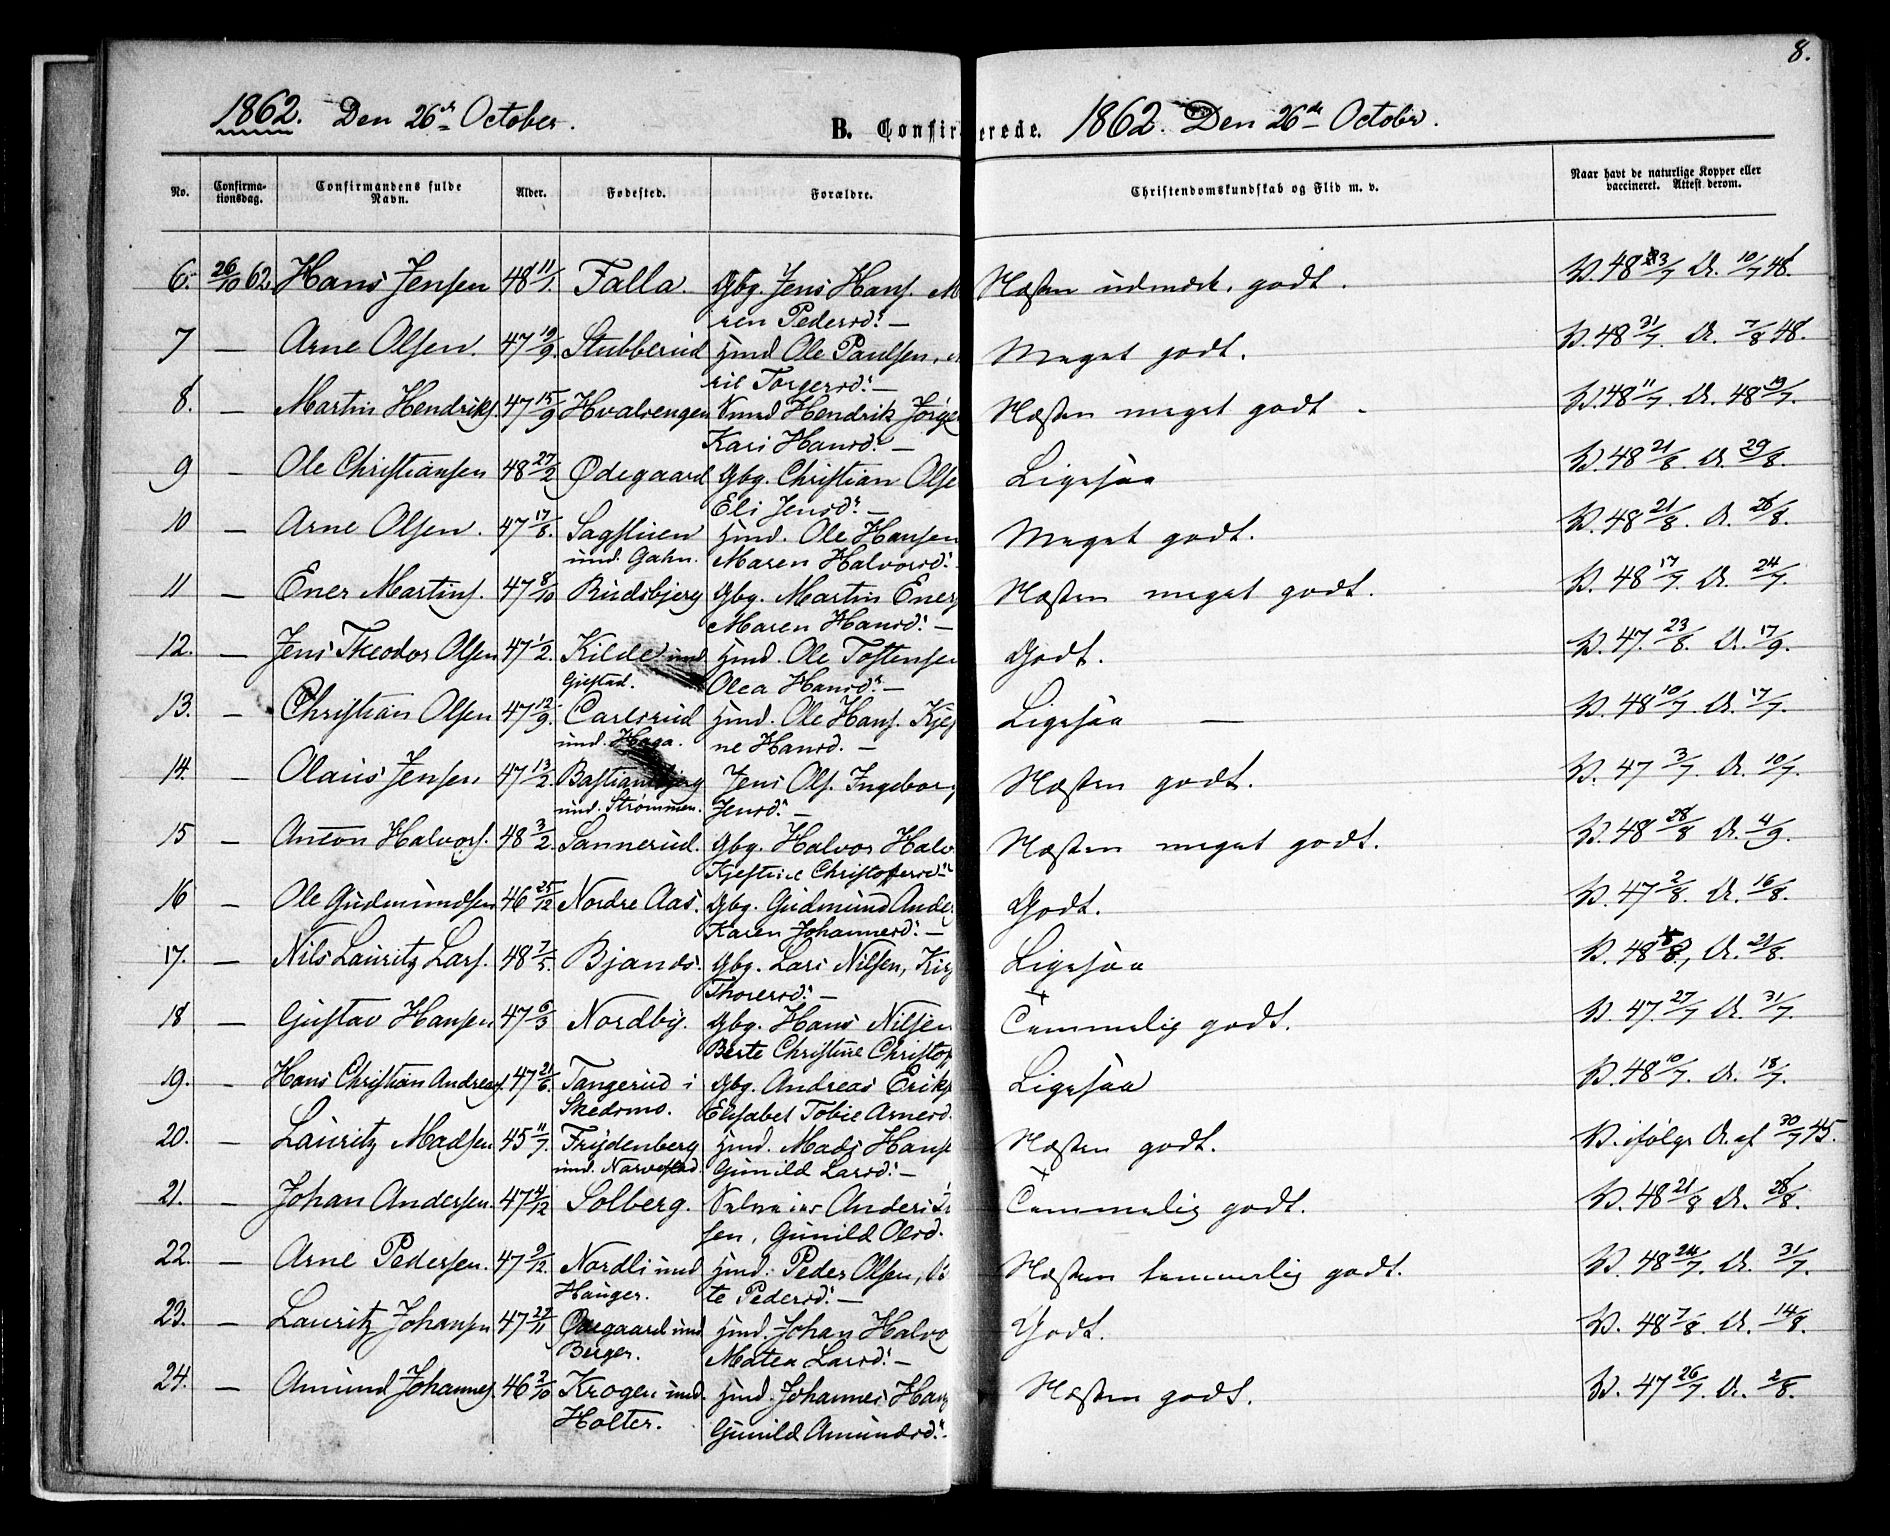 8.
1862. Den 26de October.
B. Confirmerede.
1862. Den 26de October.
No. Confirmationsdag. Confirmandens fulde Navn. Alder. Fødested. Forældre. Christendomskundskab og Flid m. v. Naar havt de naturlige Kopper eller vaccineret. Attest derom.
6. 26/10 62. Hans Jensen 48 11/1. Falla. Gbg. Jens Hans. M Næsten udmærk. godt. V. 48 23/7 A. 10/7 48.
ren Pedersd. —
7 — Arne Olsen. 47 19/9. Stubberud Hmd Ole Paulsen, Meget godt. V. 48 31/7. A. 7/8 48.
ril Torgersd. —
8. — Martin Hendriks. 47 15/9 Hvalsengen Hendrik Jørge Næsten meget godt. V. 48 11/7. A. 48 19/7.
Kari Hansd. —
9 — Ole Christiansen 48 27/2 Ødegaard Gbg. Christian Olse Ligesaa V. 48 21/8. A. 29/8.
Eli Jensd. —
10 — Arne Olsen. 47 17/8. Sagstuen Hmd. Ole Hansen Meget godt. V. 48 21/8. A. 26/8.
und. Gahn. Maren Halvorsd.
11 — Ener Martins. 47 8/10 Rudsbjerg Gbg. Martin Eners Næsten meget godt. V. 48 17/7. A. 24/7.
Maren Hansd. —
12. — Jens Theodor Olsen 47 1/2. Kilde und Hmd. Ole Tostensen Godt. V. 47. 23/8. A. 17/9.
Gistad. Olea Hansd. —
13. — Christian Olsen 47 12/9. Carlsrud Hmd. Ole Hans. Kjes Ligesaa — V. 48 10/7. A. 17/7.
und. Haga. ne Hansd. —
14. — Olaus Jensen 47 13/2. Bastiansbjerg Jens Ols. Ingeborg Næsten godt. V. 47 3/7. A. 10/7.
und. Strømmen. Jensd. —
15 — Anton Halvors. 48 3/2. Sannerud. Gbg. Halvor Halv Næsten meget godt. V. 48 28/8 A. 4/9.
Kjestine Christofersd.
16 — Ole Gudmundsen 46 25/12 Nordre Aas. Gbg. Gudmund Ander Godt. V. 47 2/8. A. 16/8.
Karen Johannesd. —
17. — Nils Lauritz Lars. 48 7/5. Bjands. Gbg. Lars Nilsen, Kir Ligesaa V. 48 A. 21/8.
Thoresd. —
18 — Gustav Hansen 47 6/3 Nordby. Gbg. Hans Nilsen Temmelig godt. V. 47. 27/7 A. 31/7.
Berte Christine Christof
19. — Hans Christian Andreas. 47 21/6. Tangerud i Gbg. Andreas Eriks Ligesaa V. 48 10/7. A. 18/7.
Skedsmo. Elisabet Tobie Arnesd.
20. — Lauritz Madsen 45 11/7. Frydenberg Hmd. Mads Hans Næsten godt. V. ifølge A. af 30/7 45.
und. Narvestad. Gunild Larsd. —
21. — Johan Andersen. 47 4/12 Solberg. Anders Temmelig godt. V. 48 21/8 A. 28/8.
sen, Gunild Olsd.
22. — Arne Pedersen. 47 2/12. Nordli und Hmd. Peder Olsen, Næsten temmelig godt. V. 48 24/7. A. 31/7.
Hauger. te Pedersd. —
23. — Lauritz Johansen 47 27/11 Ødegaard und. Hmd. Johan Halvo Godt. V. 48 7/8. A. 14/8.
Berger. Matea Larsd. —
24. — Amund Johannes. 46 2/10 Krogen und. Hmd. Johannes Hans Næsten godt. V. 47 26/7. A. 2/8.
Holter. Gunild Amundsd.